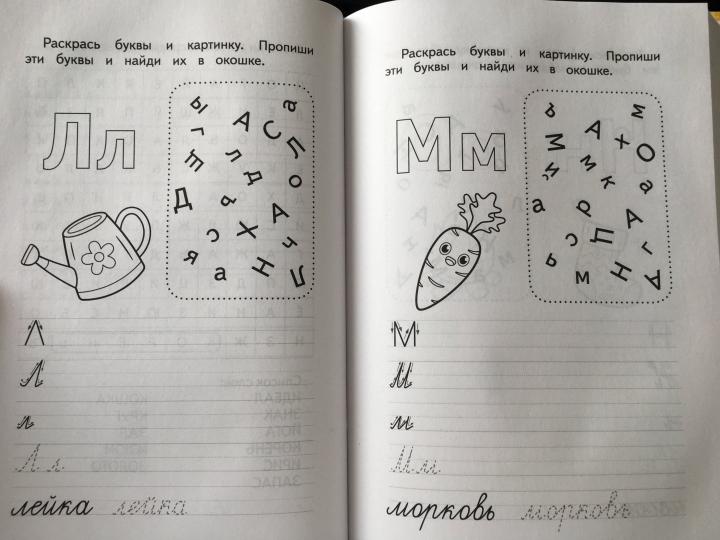 Раскрась буквы и картинку. Пропиши
эти буквы и найди их в окошке.
Лл
ы а
г А С
щ л П
д о
Д а А
с Х ч
я а Н Л
Л
Л
л
Л л
лейка лейка
Раскрась буквы и картинку. Пропиши
эти буквы и найди их в окошке.
Мм
ъ м
М А х О
й м к а
а р А
с Д г
ь м Н Д
М
М
м
М м
морковь морковь